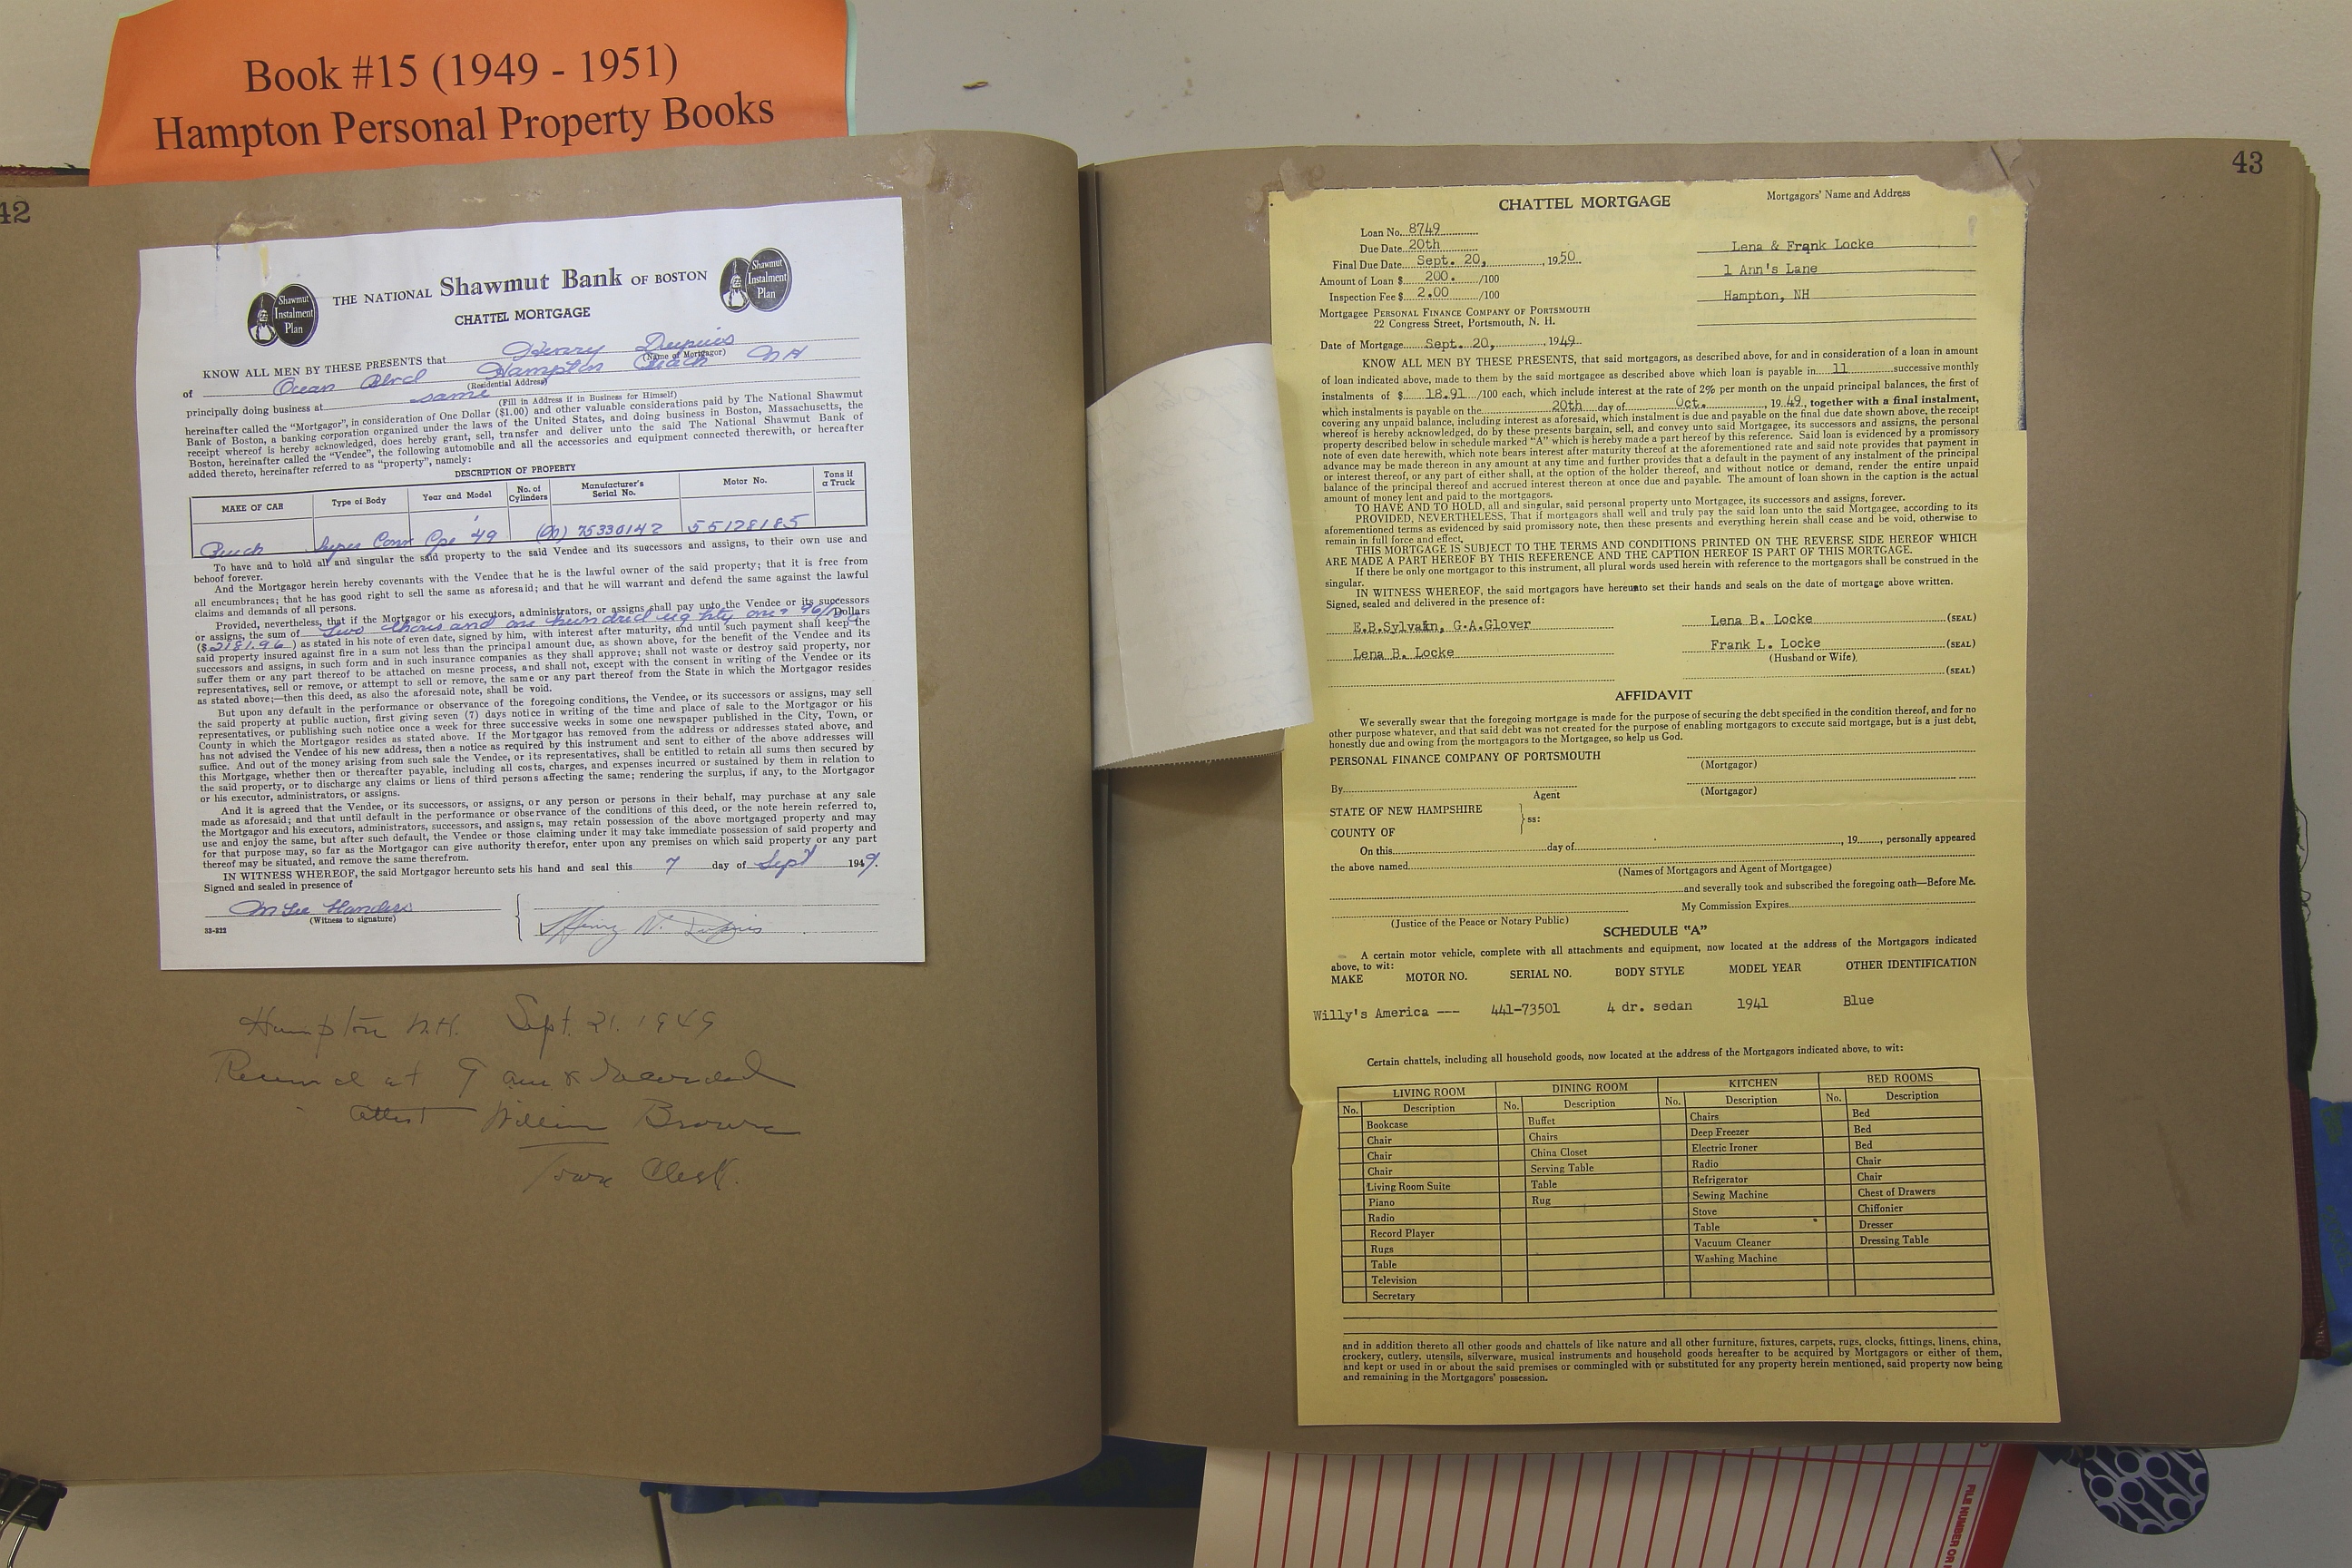 Book #15 (1949 - 1951)
Hampton Personal Property Books
42
Shawmut
Instalment
Plan
THE NATIONAL Shawmut Bank OF BOSTON
Shawmut
Instalment
Plan
CHATTEL MORTGAGE
KNOW ALL MEN BY THESE PRESENTS that Henry Dupuis
(Name of Mortgagor)
of Ocean Blvd Hampton Beach NH
(Residential Address)
principally doing business at same
(Fill in Address if in Business for Himself)
hereinafter called the "Mortgagor", in consideration of One Dollar ($1.00) and other valuable considerations paid by The National Shawmut
Bank of Boston, a banking corporation organized under the laws of the United States, and doing business in Boston, Massachusetts, the
receipt whereof is hereby acknowledged, does hereby grant, sell, transfer and deliver unto the said The National Shawmut Bank of
Boston, hereinafter called the "Vendee", the following automobile and all the accessories and equipment connected therewith, or hereafter
added thereto, hereinafter referred to as "property", namely:
DESCRIPTION OF PROPERTY
MAKE OF CAR Type of Body Year and Model No. of Cylinders Manufacturer's Serial No. Motor No. Tons if a Truck
Super Conv Cpe '49 (N) 75330142 55128185
To have and to hold all and singular the said property to the said Vendee and its successors and assigns, to their own use and
behoof forever.
And the Mortgagor herein hereby covenants with the Vendee that he is the lawful owner of the said property; that it is free from
all encumbrances; that he has good right to sell the same as aforesaid; and that he will warrant and defend the same against the lawful
claims and demands of all persons.
Provided, nevertheless, that if the Mortgagor or his executors, administrators, or assigns shall pay unto the Vendee or its successors
or assigns, the sum of Two thousand one hundred eighty one & 96/100 Dollars
($2181.96) as stated in his note of even date, signed by him, with interest after maturity, and until such payment shall keep the
said property insured against fire in a sum not less than the principal amount due, as shown above, for the benefit of the Vendee and its
successors and assigns, in such form and in such insurance companies as they shall approve; shall not waste or destroy said property, nor
suffer them or any part thereof to be attached on mesne process, and shall not, except with the consent in writing of the Vendee or its
representatives, sell or remove, or attempt to sell or remove, the same or any part thereof from the State in which the Mortgagor resides
as stated above;—then this deed, as also the aforesaid note, shall be void.
But upon any default in the performance or observance of the foregoing conditions, the Vendee, or its successors or assigns, may sell
the said property at public auction, first giving seven (7) days notice in writing of the time and place of sale to the Mortgagor or his
representatives, or publishing such notice once a week for three successive weeks in some one newspaper published in the City, Town, or
County in which the Mortgagor resides as stated above. If the Mortgagor has removed from the address or addresses stated above, and
has not advised the Vendee of his new address, then a notice as required by this instrument and sent to either of the above addresses will
suffice. And out of the money arising from such sale the Vendee, or its representatives, shall be entitled to retain all sums then secured by
this Mortgage, whether then or thereafter payable, including all costs, charges, and expenses incurred or sustained by them in relation to
the said property, or to discharge any claims or liens of third persons affecting the same; rendering the surplus, if any, to the Mortgagor
or his executor, administrators, or assigns.
And it is agreed that the Vendee, or its successors, or assigns, or any person or persons in their behalf, may purchase at any sale
made as aforesaid; and that until default in the performance or observance of the conditions of this deed, or the note herein referred to,
the Mortgagor and his executors, administrators, successors, and assigns, may retain possession of the above mortgaged property and may
use and enjoy the same, but after such default, the Vendee or those claiming under it may take immediate possession of said property and
for that purpose may, so far as the Mortgagor can give authority therefor, enter upon any premises on which said property or any part
thereof may be situated, and remove the same therefrom.
IN WITNESS WHEREOF, the said Mortgagor hereunto sets his hand and seal this 7 day of Sept 1949.
Signed and sealed in presence of
(Witness to signature)
Henry N. Dupuis
33-222
Hampton N.H. Sept. 21. 1949
Received at 9 am & Recorded
attest William Brown
Town Clerk.
43
CHATTEL MORTGAGE
Mortgagors' Name and Address
Loan No. 8749
Due Date 20th
Final Due Date Sept. 20, 1950
Amount of Loan $ 200. /100
Inspection Fee $ 2.00 /100
Lena & Frank Locke
1 Ann's Lane
Hampton, NH
Mortgagee PERSONAL FINANCE COMPANY OF PORTSMOUTH
22 Congress Street, Portsmouth, N. H.
Date of Mortgage Sept. 20, 1949
KNOW ALL MEN BY THESE PRESENTS, that said mortgagors, as described above, for and in consideration of a loan in amount
of loan indicated above, made to them by the said mortgagee as described above which loan is payable in 11 successive monthly
instalments of $ 18.91 /100 each, which include interest at the rate of 2% per month on the unpaid principal balances, the first of
which instalments is payable on the 20th day of Oct. , 1949, together with a final instalment,
covering any unpaid balance, including interest as aforesaid, which instalment is due and payable on the final due date shown above, the receipt
whereof is hereby acknowledged, do by these presents bargain, sell, and convey unto said Mortgagee, its successors and assigns, the personal
property described below in schedule marked "A" which is hereby made a part hereof by this reference. Said loan is evidenced by a promissory
note of even date herewith, which note bears interest after maturity thereof at the aforementioned rate and said note provides that payment in
advance may be made thereon in any amount at any time and further provides that a default in the payment of any instalment of the principal
or interest thereof, or any part of either shall, at the option of the holder thereof, and without notice or demand, render the entire unpaid
balance of the principal thereof and accrued interest thereon at once due and payable. The amount of loan shown in the caption is the actual
amount of money lent and paid to the mortgagors.
TO HAVE AND TO HOLD, all and singular, said personal property unto Mortgagee, its successors and assigns, forever.
PROVIDED, NEVERTHELESS, That if mortgagors shall well and truly pay the said loan unto the said Mortgagee, according to its
aforementioned terms as evidenced by said promissory note, then these presents and everything herein shall cease and be void, otherwise to
remain in full force and effect.
THIS MORTGAGE IS SUBJECT TO THE TERMS AND CONDITIONS PRINTED ON THE REVERSE SIDE HEREOF WHICH
ARE MADE A PART HEREOF BY THIS REFERENCE AND THE CAPTION HEREOF IS PART OF THIS MORTGAGE.
If there be only one mortgagor to this instrument, all plural words used herein with reference to the mortgagors shall be construed in the
singular.
IN WITNESS WHEREOF, the said mortgagors have hereunto set their hands and seals on the date of mortgage above written.
Signed, sealed and delivered in the presence of:
E.B.Sylvain, G.A.Glover Lena B. Locke (SEAL)
Lena B. Locke Frank L. Locke (SEAL)
(Husband or Wife)
(SEAL)
AFFIDAVIT
We severally swear that the foregoing mortgage is made for the purpose of securing the debt specified in the condition thereof, and for no
other purpose whatever, and that said debt was not created for the purpose of enabling mortgagors to execute said mortgage, but is a just debt,
honestly due and owing from the mortgagors to the Mortgagee, so help us God.
PERSONAL FINANCE COMPANY OF PORTSMOUTH
(Mortgagor)
By
Agent
(Mortgagor)
STATE OF NEW HAMPSHIRE
COUNTY OF
ss:
On this day of , 19 , personally appeared
the above named
(Names of Mortgagors and Agent of Mortgagee)
and severally took and subscribed the foregoing oath—Before Me.
My Commission Expires
(Justice of the Peace or Notary Public)
SCHEDULE "A"
A certain motor vehicle, complete with all attachments and equipment, now located at the address of the Mortgagors indicated
above, to wit:
MAKE MOTOR NO. SERIAL NO. BODY STYLE MODEL YEAR OTHER IDENTIFICATION
Willy's America --- 441-73501 4 dr. sedan 1941 Blue
Certain chattels, including all household goods, now located at the address of the Mortgagors indicated above, to wit:
LIVING ROOM DINING ROOM KITCHEN BED ROOMS
No. Description No. Description No. Description No. Description
Bookcase Buffet Chairs Bed
Chair Chairs Deep Freezer Bed
Chair China Closet Electric Ironer Bed
Chair Serving Table Radio Chair
Living Room Suite Table Refrigerator Chair
Piano Rug Sewing Machine Chest of Drawers
Radio Stove Chiffonier
Record Player Table Dresser
Rugs Vacuum Cleaner Dressing Table
Table Washing Machine
Television
Secretary
and in addition thereto all other goods and chattels of like nature and all other furniture, fixtures, carpets, rugs, clocks, fittings, linens, china,
crockery, cutlery, utensils, silverware, musical instruments and household goods hereafter to be acquired by Mortgagors or either of them,
and kept or used in or about the said premises or commingled with or substituted for any property herein mentioned, said property now being
and remaining in the Mortgagors' possession.
FILE NUMBER OR